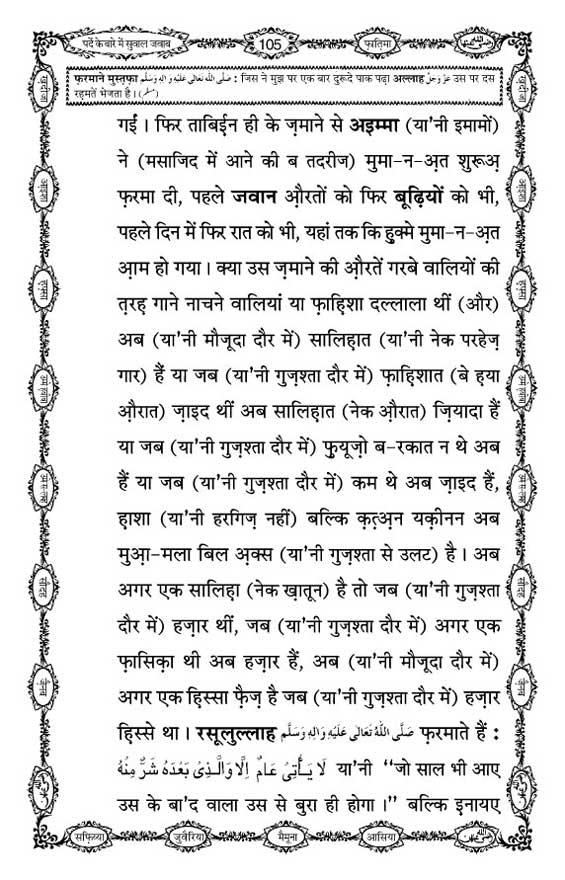 पर्दे के बारे में सुवाल जवाब
105
फ़ातिमा
फ़रमाने मुस्तफ़ा صَلَّى اللهُ تَعَالٰى عَلَيْهِ وَاٰلِهٖ وَسَلَّم : जिस ने मुझ पर एक बार दुरूदे पाक पढ़ा अल्लाह عَزَّ وَجَلَّ उस पर दस
रहमतें भेजता है। (مسلم)
गईं । फिर ताबिईन ही के ज़माने से अइम्मा (या'नी इमामों)
ने (मसाजिद में आने की ब तदरीज) मुमा-न-अ़त शुरूअ़
फ़रमा दी, पहले जवान औ़रतों को फिर बूढ़ियों को भी,
पहले दिन में फिर रात को भी, यहां तक कि हुक्मे मुमा-न-अ़त
आ़म हो गया । क्या उस ज़माने की औ़रतें गरबे वालियों की
त़रह गाने नाचने वालियां या फ़ाहिशा दल्लाला थीं (और)
अब (या'नी मौजूदा दौर में) सालिहात (या'नी नेक परहेज़
गार) हैं या जब (या'नी गुज़श्ता दौर में) फ़ाहिशात (बे ह़या
औ़रात) ज़ाइद थीं अब सालिहात (नेक औ़रात) ज़ियादा हैं
या जब (या'नी गुज़श्ता दौर में) फ़ुयूज़ो ब-रकात न थे अब
हैं या जब (या'नी गुज़श्ता दौर में) कम थे अब ज़ाइद हैं,
ह़ाशा (या'नी हरगिज़ नहीं) बल्कि क़त्अ़न यक़ीनन अब
मुआ़-मला बिल अ़क्स (या'नी गुज़श्ता से उलट) है । अब
अगर एक सालिहा (नेक ख़ातून) है तो जब (या'नी गुज़श्ता
दौर में) हज़ार थीं, जब (या'नी गुज़श्ता दौर में) अगर एक
फ़ासिक़ा थी अब हज़ार हैं, अब (या'नी मौजूदा दौर में)
अगर एक हिस्सा फ़ैज़ है जब (या'नी गुज़श्ता दौर में) हज़ार
हिस्से था । रसूलुल्लाह صَلَّى اللهُ تَعَالٰى عَلَيْهِ وَاٰلِهٖ وَسَلَّم फ़रमाते हैं :
لَا يَأْتِىْ عَامٌ اِلَّا وَالَّذِىْ بَعْدَهٗ شَرٌّ مِّنْهُ या'नी “जो साल भी आए
उस के बा'द वाला उस से बुरा ही होगा ।” बल्कि इनायए
सफ़िय्या
जुवैरिया
मैमूना
आसिया